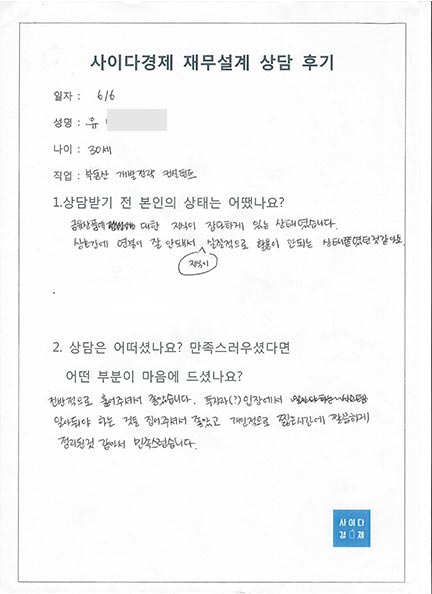 사이다경제 재무설계 상담 후기
일자 : 6/6
성명 : 유
나이 : 30세
직업 : 부동산 개발전략 컨설턴트
1.상담받기 전 본인의 상태는 어땠나요?
금융상품에 대한 지식이 간단하게 있는 상태였습니다.
상호간에 연결이 잘 안돼서 실질적으로 활용이 안되는 상태였던것같아요.
지식이
2. 상담은 어떠셨나요? 만족스러우셨다면
어떤 부분이 마음에 드셨나요?
전반적으로 훑어주셔서 좋았습니다. 투자자(?)입장에서
알아둬야 하는 것을 집어주셔서 좋았고 개인적으로 짧은시간에 깔끔하게
정리된것 같아서 만족스럽습니다.
사이다
경제